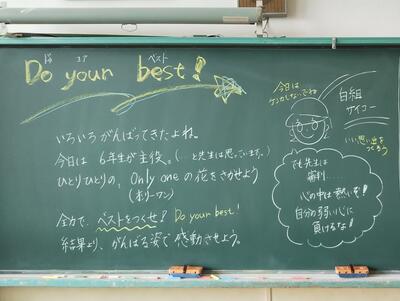 ドゥ ユア ベスト
Do your best!
いろいろがんばってきたよね。
今日は 6年生が主役。(…と先生は思っています。)
ひとりひとりの、Only oneの花をさかせよう
(オンリーワン)
全力で、ベストをつくせ! Do your best!
結果より、がんばる姿で感動させよう。
今日は
ケンカしないでね
白組
サイコー
いい思い出を
つくろう
でも先生は
審判……
心の中は熱いぞ!
自分の弱い心に
負けるな!